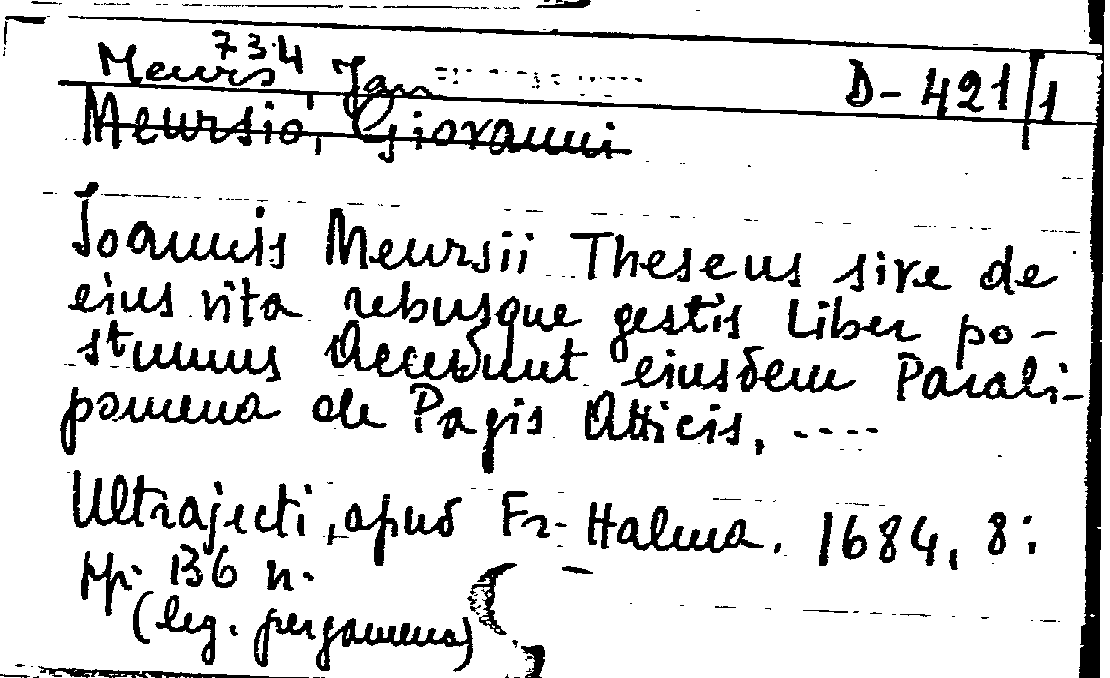 734
Meurs, Jan D-421/1
Meursio, Giovanni
Ioannis Meursii Theseus sive de
eius vita rebusque gestis Liber po-
stumus Accedunt eiusdem Parali-
pomena de Pagis Atticis, ----
Ultrajecti, apud Fr. Halma. 1684, 8:
pp. 136 n.
(leg. pergamena)